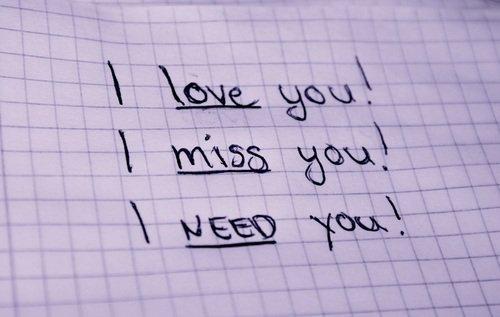 I love you!
I miss you!
I NEED you!